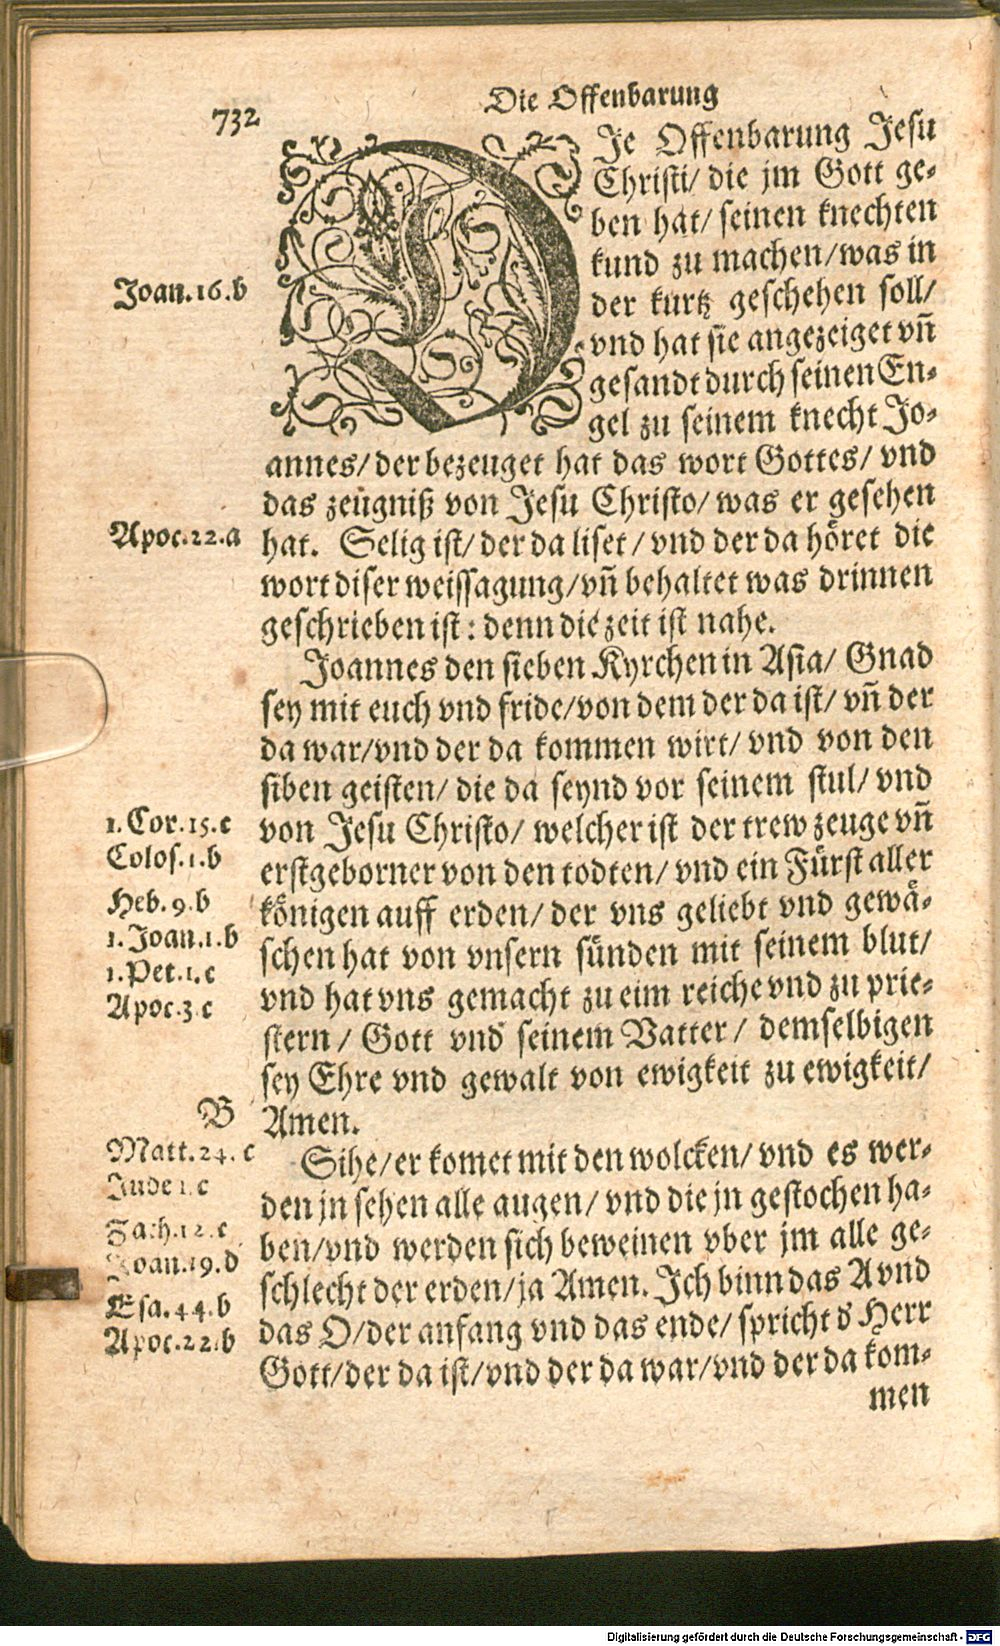 732
Die Offenbarung
DIe Offenbarung Jesu
Christi/ die jm Gott ge-
ben hat/ seinen knechten
kund zu machen/was in
der kurtz geschehen soll/
vnd hat sie angezeiget vñ
gesandt durch seinen En-
gel zu seinem knecht Jo-
annes/ der bezeuget hat das wort Gottes/ vnd
das zeügniß von Jesu Christo/ was er gesehen
hat. Selig ist/ der da liset/ vnd der da höret die
wort diser weissagung/vñ behaltet was drinnen
geschrieben ist: denn die zeit ist nahe.
Joannes den sieben Kyrchen in Asia/ Gnad
sey mit euch vnd fride/von dem der da ist/ vñ der
da war/vnd der da kommen wirt/ vnd von den
siben geisten/ die da seynd vor seinem stul/ vnd
von Jesu Christo/ welcher ist der trew zeuge vñ
erstgeborner von den todten/ vnd ein Fürst aller
königen auff erden/ der vns geliebt vnd gewä-
schen hat von vnsern sünden mit seinem blut/
vnd hat vns gemacht zu eim reiche vnd zu prie-
stern/ Gott vnd seinem Vatter/ demselbigen
sey Ehre vnd gewalt von ewigkeit zu ewigkeit/
Amen.
Sihe/er komet mit den wolcken/ vnd es wer-
den jn sehen alle augen/ vnd die jn gestochen ha-
ben/vnd werden sich beweinen vber jm alle ge-
schlecht der erden/ja Amen. Ich binn das A vnd
das O/der anfang vnd das ende/ spricht d̕ Herr
Gott/der da ist/vnd der da war/vnd der da kom-
men
Joan.16.b
Apoc.22.a
1.Cor.15.c
Colos.1.b
Heb.9.b
1.Joan.1.b
1.Pet.1.c
Apoc.3.c
B
Matt.24.c
Jude 1.c
Zach.12.c
Joan.19.d
Esa.44.b
Apoc.22.b
Digitalisierung gefördert durch die Deutsche Forschungsgemeinschaft - DFG